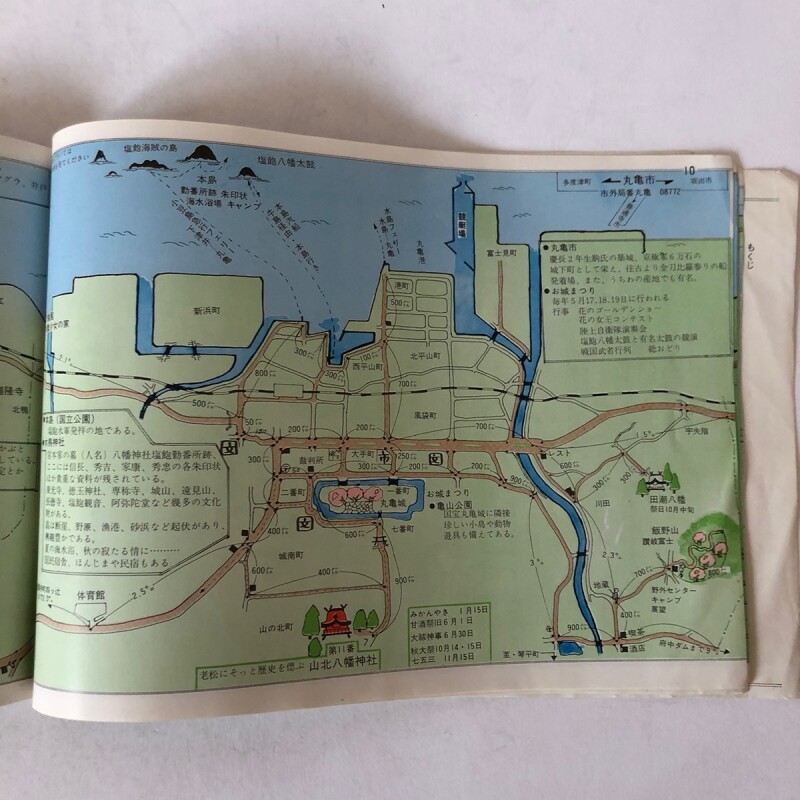 塩飽海賊の島
塩飽八幡太鼓
本島
勤番所跡 朱印状
海水浴場 キャンプ
多度津町
丸亀市
坂出市
市外局番丸亀 08772
10
もくじ
競艇場
富士見町
丸亀港
港町
500
新浜町
●丸亀市
慶長2年生駒氏の築城、京極家6万石の
城下町として栄え、往古より金刀比羅参りの船
発着場、また、うちわの産地でも有名。
●お城まつり
毎年5月17,18,19日に行われる
行事 花のゴールデンショー
花の女王コンテスト
陸上自衛隊演奏会
塩飽八幡太鼓と有名太鼓の競演
戦国武者行列 総おどり
300
100
西平山町
北平山町
800
300
700
500
風袋町
本島(国立公園)
塩飽水軍発祥の地である。
宮本家の墓(人名)八幡神社塩飽勤番所跡、
ここには信長、秀吉、家康、秀忠の各朱印状
ほか貴重な資料が残されている。
東光寺、徳玉神社、専称寺、城山、遠見山、
長徳寺、塩飽観音、阿弥陀堂など幾多の文化
財がある。
島は断崖、野原、漁港、砂浜など起伏があり、
美観豊かである。
夏の海水浴、秋の寂たる情に………
国民宿舎、ほんじまや民宿もある
50
200
200
200
裁判所
大手町
市
文
300
250
200
900
二番町
一番町
丸亀城
お城まつり
●亀山公園
国宝丸亀城に隣接
珍しい小鳥や動物
道具も備えてある。
七番町
文
城南町
400
600
400
900
レスト
250
300
川田
1.5
宇夫階
田潮八幡
祭日10月中旬
飯野山
讃岐富士
800
3
2.3
地蔵
400
野外センター
キャンプ
展望
喫茶
酒店
600
府中ダムまで9
至・琴平町
体育館
2.5
山の北町
第11番
老松にそっと歴史を偲ぶ 山北八幡神社
みかんやき 1月15日
甘酒祭旧6月1日
大祓神事6月30日
秋大祭10月14・15日
七五三 11月15日